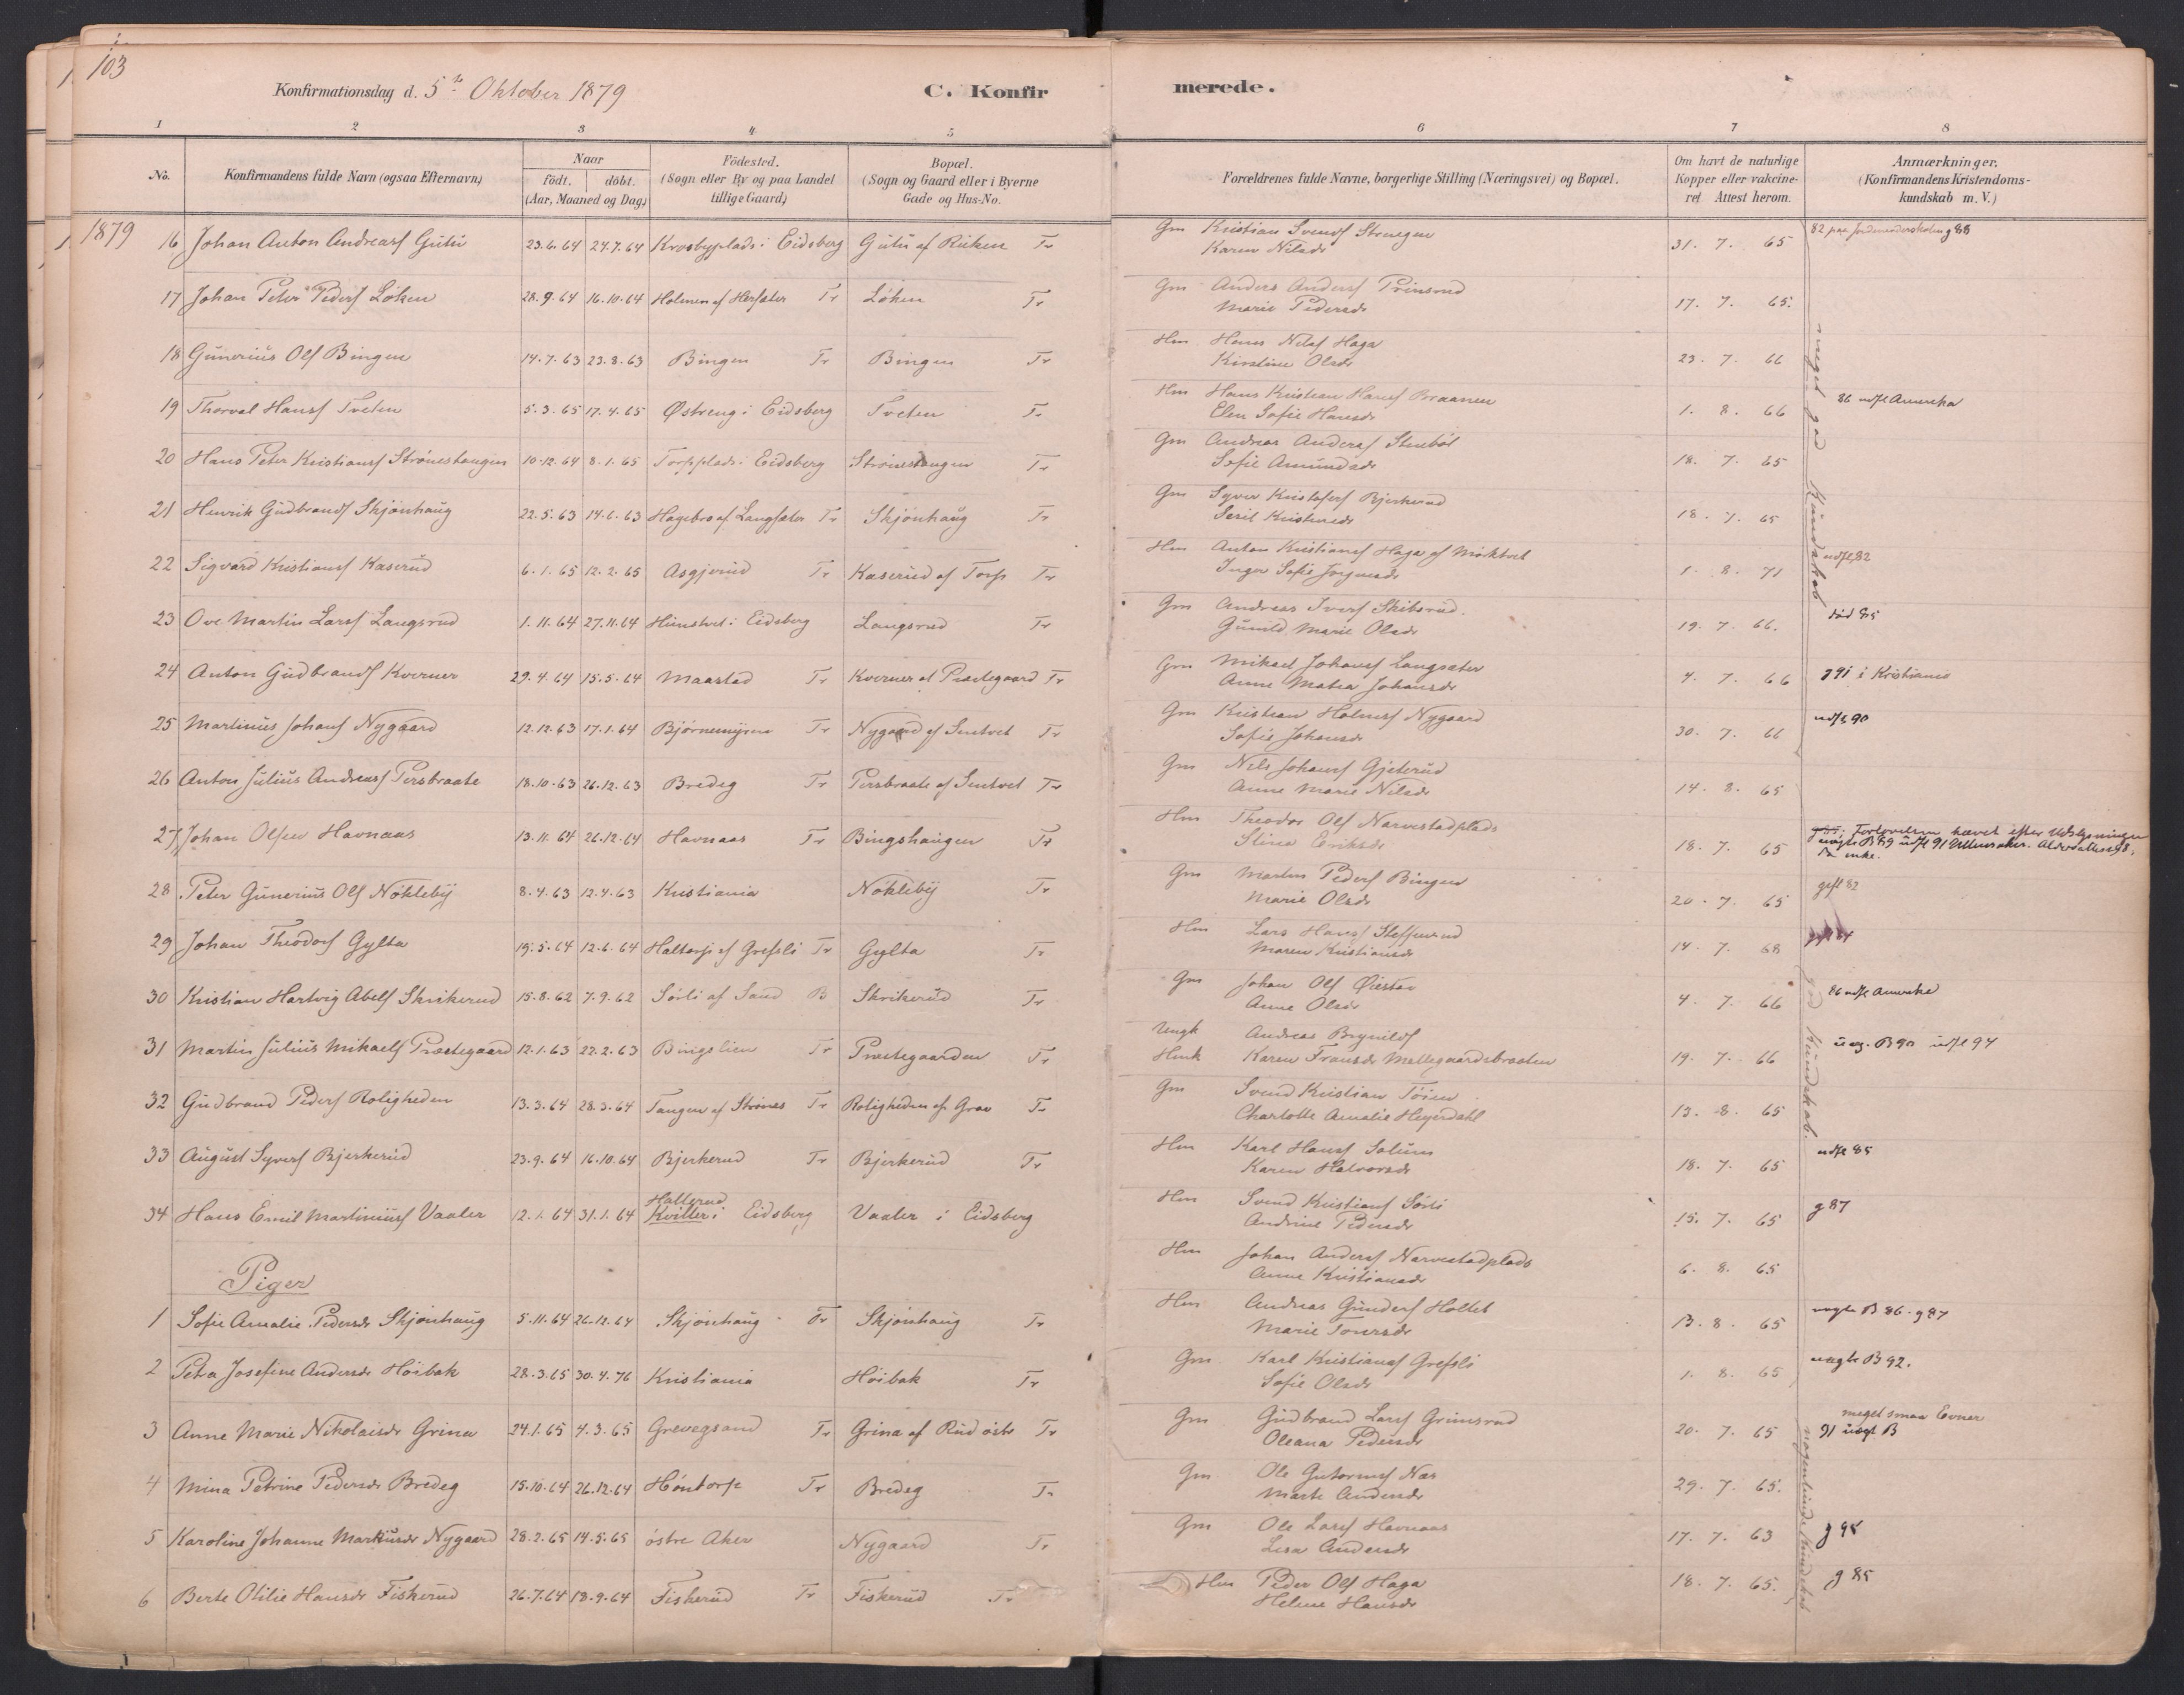 103
Konfirmationsdag d. 5te Oktober 1879
C. Konfir
1 2 3 4 5
No. Konfirmandens fulde Navn (ogsaa Efternavn) Naar födt. döbt. (Aar, Maaned og Dag) Födested. (Sogn eller By og paa Landet tillige Gaard) Bopæl. (Sogn og Gaard eller i Byerne Gade og Hus-No.
1879
16 Johan Anton Andreasf Gutu 23.6.64 24.7.64 Krosbyplads i Eidsberg Gutu af Ruken Tr
17 Johan Peter Pedersf Løken 28.9.64 16.10.64 Holmen af Hersæter Tr Løken Tr
18 Gunerius Olf Bingen 14.7.63 23.8.63 Bingen Tr Bingen Tr
19 Thorval Hansf Tveten 5.3.65 17.4.65 Østreng i Eidsberg Tveten Tr
20 Hans Peter Kristiansf Strønestangen 10.12.64 8.1.65 Torpplads i Eidsberg Strønestangen Tr
21 Henrik Gudbrandsf Skjønhaug 22.5.63 14.6.63 Hagebro af Langsæter Tr Skjønhaug Tr
22 Sigvard Kristiansf Kaserud 6.1.65 12.2.65 Asgjerud Tr Kaserud af Torp Tr
23 Ove Martin Larsf Langsrud 1.11.64 27.11.64 Hunstvet i Eidsberg Langsrud Tr
24 Anton Gudbrandsf Kverner 29.4.64 15.5.64 Maastad Tr Kverner af Præstegaard Tr
25 Martinus Johansf Nygaard 12.12.63 17.1.64 Bjørnemyren Tr Nygaard af Sentvet Tr
26 Anton Julius Andreasf Persbraate 18.10.63 26.12.63 Bredeg Tr Persbraate af Sentvet Tr
27 Johan Olsen Havnaas 13.11.64 26.12.64 Havnaas Tr Bingshaugen Tr
28 Peter Gunerius Olf Nökleby 8.4.63 12.4.63 Kristiania Nökleby Tr
29 Johan Theodorf Gylta 19.5.64 12.6.64 Haltorp af Grefsli Tr Gylta Tr
30 Kristian Hartvig Abelf Skrikerud 15.8.62 7.9.62 Sørli af Sand B Skrikerud Tr
31 Martin Julius Mikaelf Præstegaard 12.1.63 22.2.63 Bingslien Tr Præstegaarden Tr
32 Gudbrand Pedersf Roligheden 13.3.64 28.3.64 Tangen af Strønes Tr Roligheden af Grav Tr
33 August Syversf Bjerkerud 23.9.64 16.10.64 Bjerkerud Tr Bjerkerud Tr
34 Hans Emil Martiniusf Vaaler 12.1.64 31.1.64 Hallerud Kviller i Eidsberg Vaaler i Eidsberg
Piger
1 Sofie Amalie Pedersdr Skjønhaug 5.11.64 26.12.64 Skjønhaug Tr Skjønhaug Tr
2 Petra Josefine Andersdr Höibak 28.3.65 30.4.76 Kristiania Höibak Tr
3 Anne Marie Nikolaisdr Grina 24.1.65 4.3.65 Grevegsand Tr Grina af Rud östr Tr
4 Mina Petrine Pedersdr Bredeg 15.10.64 26.12.64 Höntorp Tr Bredeg Tr
5 Karoline Johanne Markusdr Nygaard 28.2.65 14.5.65 östre Aker Nygaard Tr
6 Berte Otilie Hansdr Fiskerud 26.7.64 18.9.64 Fiskerud Tr Fiskerud Tr
merede.
6 7 8
Forældrenes fulde Navne, borgerlige Stilling (Næringsvei) og Bopæl. Om havt de naturlige Kopper eller vakcineret. Attest herom. Anmærkninger. (Konfirmandens Kristendomskundskab m. V.)
Gm Kristian Svensf 31. 7. 65
Karen Nilsdr
Gm Anders Andersf Prinsrud 17. 7. 65.
Marie Pedersdr
Hm Hans Nilsf Haga 23. 7. 66
Kirstine Olsdr
meget god Kundskab
Hm Hans Kristian Hansf Braanen 1. 8. 66 86 udfl Amerika
Elen Sofie Hansdr
Gm Andreas Andersf Stenböl 18. 7. 65
Sofie Amundsdr
Gm Syver Kristofersf Bjerkerud 18. 7. 65
Seril Kristensdr
Hm Anton Kristiansf Haga af 1. 8. 71 udfl 82
Inger Sofie
Gm Andreas Iversf Skibsrud. 19. 7. 66. död 85
Gunild Marie Olsdr
Gm Mikael Johansf Langsæter 4. 7. 66 g 91 i Kristiania
Anne Matea Johansdr
Gm Kristian Holmsf Nygaard 30. 7. 66 udfl 90
Sofie Johansdr
Gm Nils Johansf Gjeterud 14. 8. 65
Anne Marie Nilsdr
Hm Theodor Olf Narvestadplads 18. 7. 65 Forlovelsen hævet efter Udlysningen ugift B 89 udfl 91 Ullensaker. Aldersattest 98, da enke.
Stina Eriksdr
Gm Martin Pedersf Bingen 20. 7. 65 gift 82
Marie Olsdr
Hm Lars Hansf Steffensrud 14. 7. 68
Maren Kristiansdr
god Kundskab.
Gm Johan Olf Øiestav 4. 7. 66 86 udfl Amerika
Anne Olsdr
Ungk Andreas Brynildsf 19. 7. 66 ug. B 90 udfl 94
Hmk Karen Fransdr Mellegaardsbraaten
Gm Svend Kristian Töien 13. 8. 65
Charlotte Amalie Heyerdahl
Hm Karl Hansf Solum 18. 7. 65 udfl 85
Karen Halvorsdr
Hm Svend Kristiansf Sörli 15. 7. 65 g 87
Andrine Pedersdr
Hm Johan Andersf Narvestadplads 6. 8. 65
Anne Kristiansdr
Hm Andreas Gundersf Holtet 13. 8. 65 ugte B 86. g 87
Marie Tonersdr
Gm Karl Kristiansf Grefsli 1. 8. 65 ugte B 92.
Sofie Olsdr
Gm Gudbrand Larsf Grimsrud 20. 7. 65 meget smaa Evner 91 ugt B
Oleana Pedersdr
nogenlunde Kundskab
Gm Ole Gutormsf Næs 29. 7. 65.
Marte Andersdr
Gm Ole Larsf Havnaas 17. 7. 63
Lisa Andersdr
Hm Peder Olf Haga 18. 7. 65. g 85
Helene Hansdr